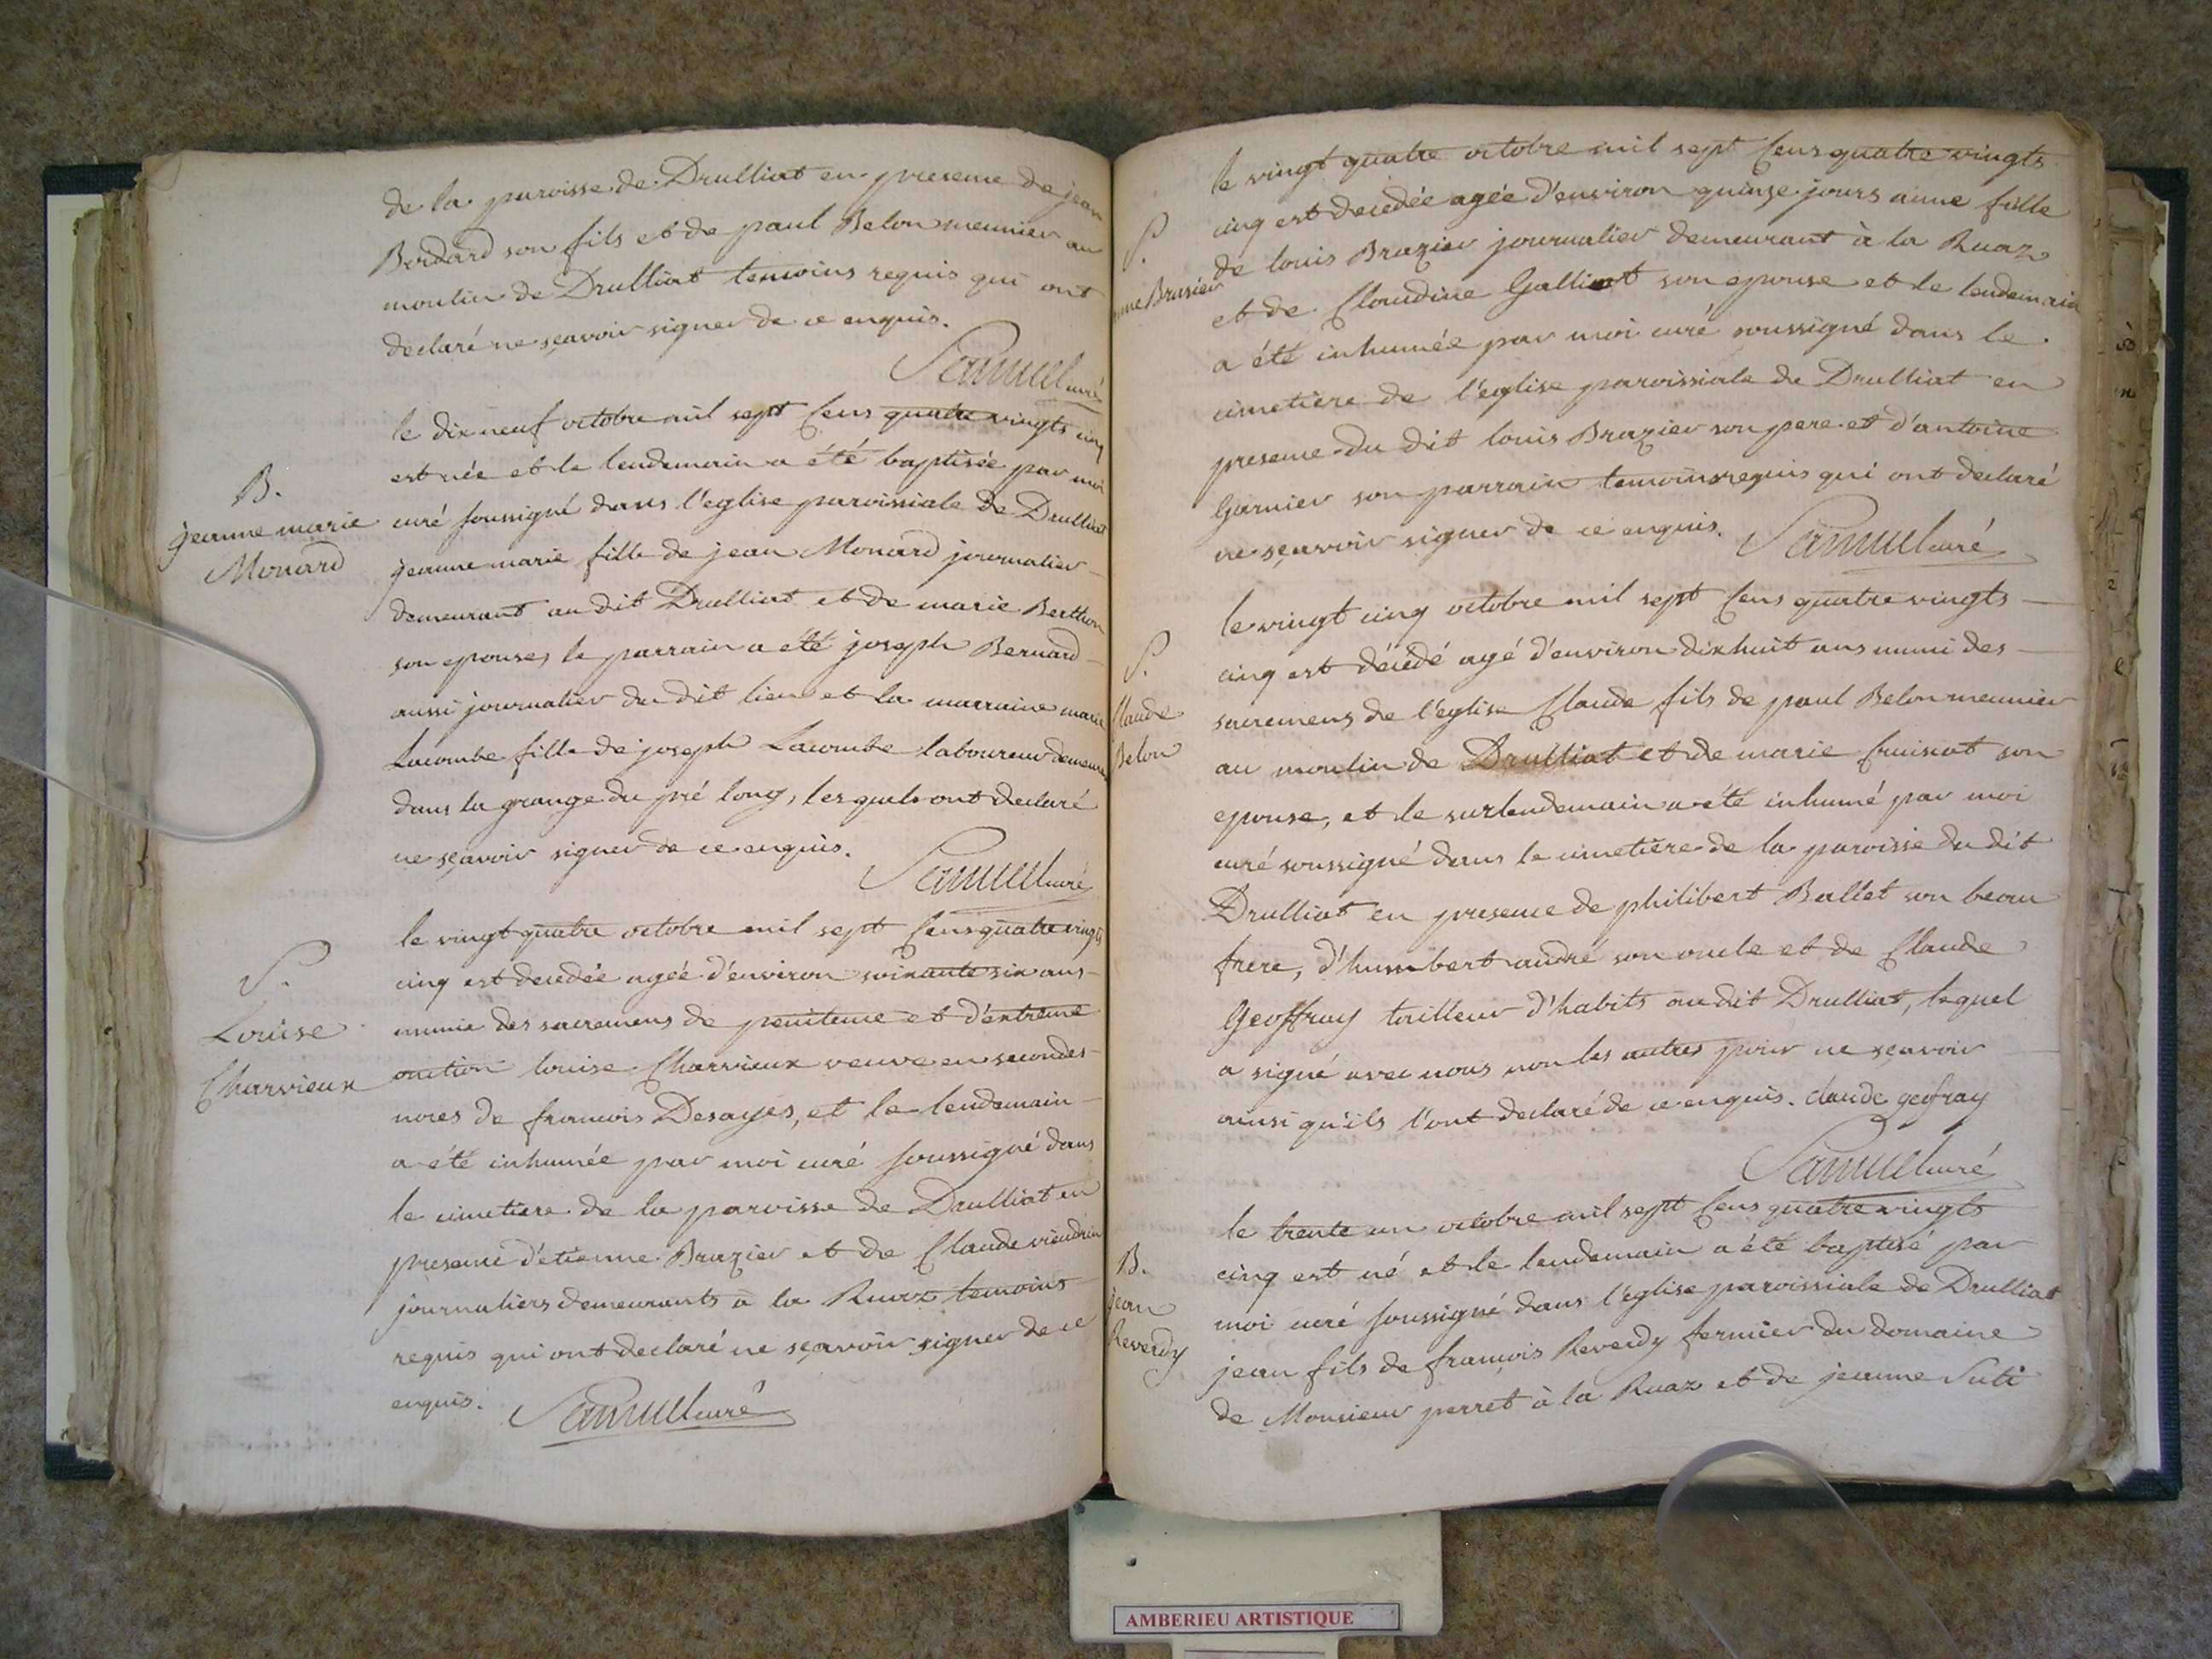 de la paroisse de Drulliat en presence de jean
Bordard son fils et de paul Belon meunier au
moulin de Drulliat temoins requis qui ont
declaré ne sçavoir signer de ce enquis.
Samuel curé
B.
jeanne marie
Monard
le dix neuf octobre mil sept cens quatre vingts cinq
est née et le lendemain a été baptisée par moi
curé soussigné dans l'eglise paroissiale de Drulliat
jeanne marie fille de jean Monard journalier
demeurant au dit Drulliat et de marie Berthon
son epouse, le parrain a été joseph Bernard
aussi journalier du dit lieu et la marraine marie
Lacombe fille de joseph Lacombe laboureur
dans la grange du pré long, lesquels ont declaré
ne sçavoir signer de ce enquis.
Samuel curé
S.
Louise
Charvieux
le vingt quatre octobre mil sept cens quatre vingts
cinq est decedée agée d'environ soixante six ans
munie des sacremens de penitence et d'extreme
onction louise Charvieux veuve en secondes
noces de francois Desayes, et le lendemain
a été inhumée par moi curé soussigné dans
le cimetiere de la paroisse de Drulliat en
presence d'etienne Brazier et de Claude
journaliers demeurants à la Ruaz temoins
requis qui ont declaré ne sçavoir signer de ce
enquis.
Samuel curé
S.
nne Brasier
le vingt quatre octobre mil sept cens quatre vingts
cinq est decedée agée d'environ quinze jours anne fille
de louis Brazier journalier demeurant à la Ruaz
et de Claudine Galliot son epouse et le lendemain
a été inhumée par moi curé soussigné dans le
cimetiere de l'eglise paroissiale de Drulliat en
presence du dit louis Brazier son pere et d'antoine
Garnier son parrain temoins requis qui ont declaré
ne sçavoir signer de ce enquis.
Samuel curé
S.
Claude
Belon
le vingt cinq octobre mil sept cens quatre vingts
cinq est décédé agé d'environ dix huit ans muni des
sacremens de l'eglise Claude fils de paul Belon meunier
au moulin de Drulliat et de marie Cruisat son
epouse, et le surlendemain a été inhumé par moi
curé soussigné dans le cimetiere de la paroisse du dit
Drulliat en presence de philibert Ballet son beau
frere, d'humbert andré son oncle et de Claude
Geoffray tailleur d'habits au dit Drulliat, lequel
a signé avec nous non les autres pour ne sçavoir
ainsi qu'ils l'ont declaré de ce enquis. claude geofray
Samuel curé
B.
jean
Reverdy
le trente un octobre mil sept cens quatre vingts
cinq est né et le lendemain a été baptisé par
moi curé soussigné dans l'eglise paroissiale de Drulliat
jean fils de françois Reverdy fermier du domaine
de Monsieur perret à la Ruaz et de jeanne Suti
AMBERIEU ARTISTIQUE